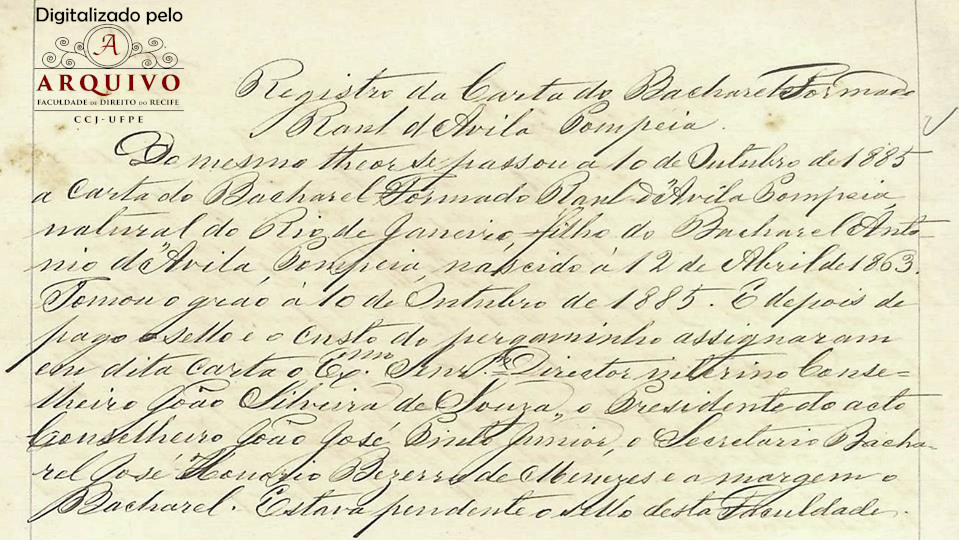 Digitalizado pelo
A
ARQUIVO
FACULDADE DE DIREITO DO RECIFE
CCJ-UFPE
Registro da Carta do Bacharel Formado
Raul d'Avila Pompeia.
Do mesmo theor se passou a 10 de Outubro de 1885
a carta do Bacharel Formado Raul d'Avila Pompeia,
natural do Rio de Janeiro, filho do Bacharel Anto-
nio d'Avila Pompeia, nascido á 12 de Abril de 1863.
Tomou o gráo á 10 de Outubro de 1885. E depois de
pago o sello e o custo do pergaminho assignaram
em dita carta o Exmo. Snr. Dr. Director interino Conse-
lheiro João Silveira de Souza, o Presidente do acto
Conselheiro João José Pinto Junior, o Secretario Bacha-
rel José Honorio Bezerra de Menezes e a margem o
Bacharel. Estava pendente o sello desta Faculdade.